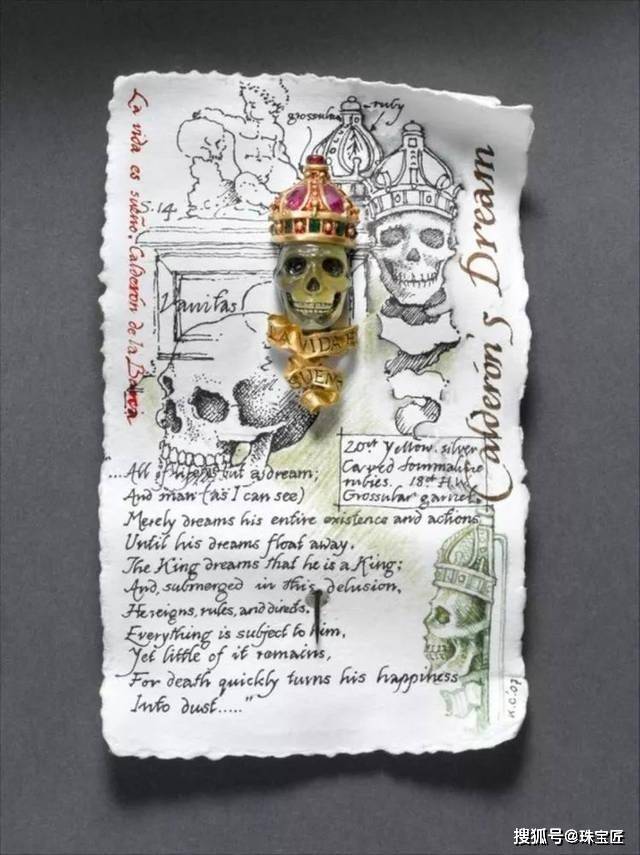 La vida es sueño. Calderón de la Barca
grossular
ruby
S.14
Vanitas
LA VIDA E
SUEÑ
Calderón's Dream
20ct Yellow, silver
Carved Tourmaline
rubies. 18ct H.W.
Grossular garnet.
...All of life is but a dream;
And man (as I can see)
Merely dreams his entire existence and actions
Until his dreams float away.
The King dreams that he is a King;
And, submerged in this delusion,
He reigns, rules, and directs.
Everything is subject to him,
Yet little of it remains,
For death quickly turns his happiness
Into dust....."
K.C.'07
搜狐号@珠宝匠